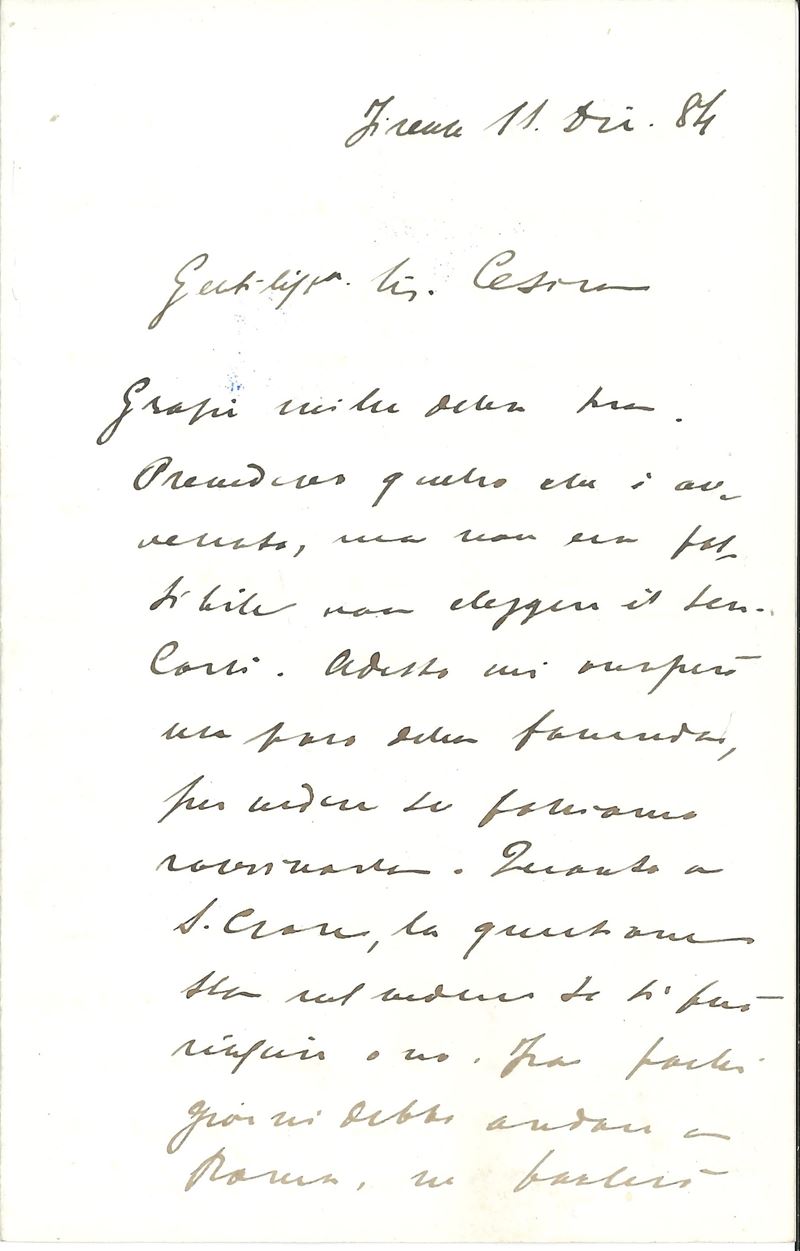 Firenze 11. Dic. 84
Gentiliss.ma Sig. Cesira
Grazie mille della sua.
Prevedevo quello che è av-
venuto, ma non era pos-
sibile non eleggere il sen.
Corsi. Adesso mi
un poco della faccenda,
per vedere se possiamo
ravvivarla. Quanto a
S. Croce, la questione
sta nel vedere se si può
o no. Fra pochi
giorni debbo andare a
Roma, ne parlerò